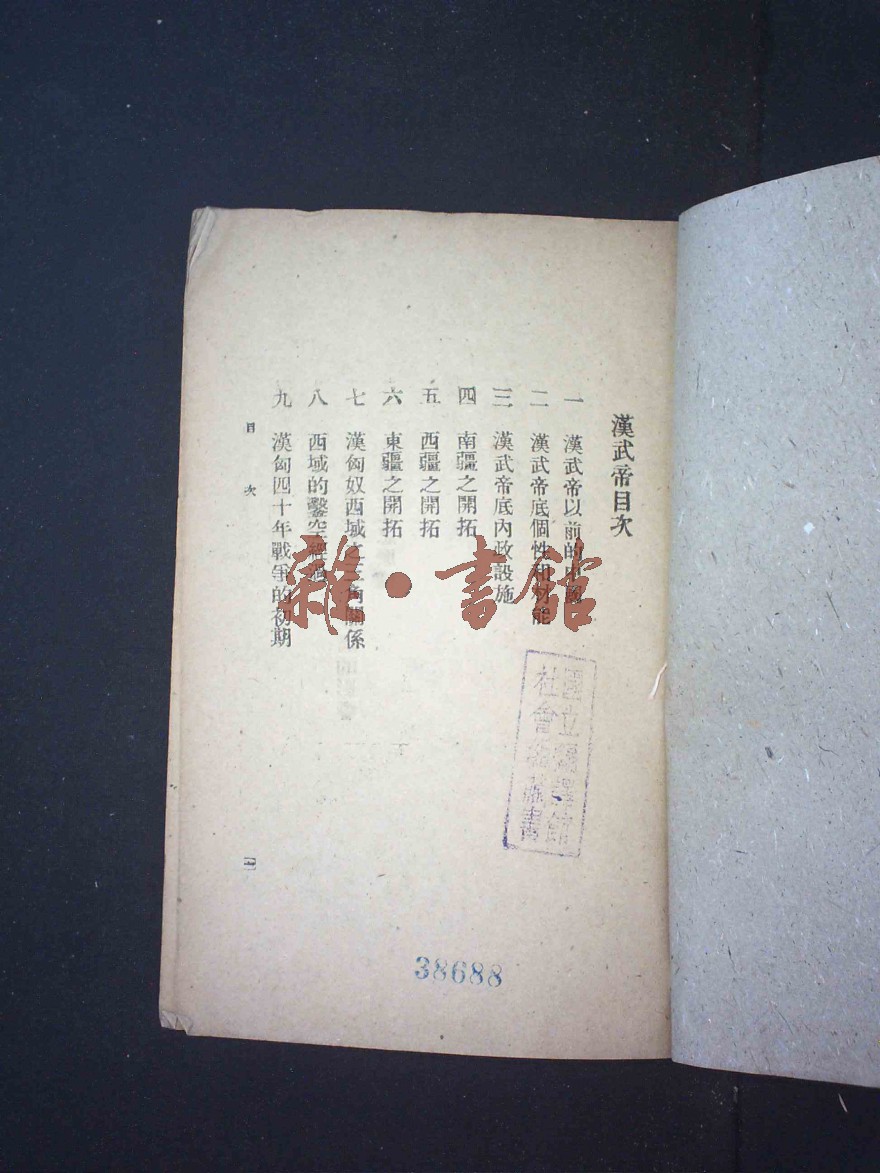 漢武帝目次
一　漢武帝以前的中國
二　漢武帝底個性和材能
三　漢武帝底內政設施
四　南疆之開拓
五　西疆之開拓
六　東疆之開拓
七　漢匈奴西域之三角關係
八　西域的鑿空經過
九　漢匈四十年戰爭的初期
目次
國立編譯館
社會組藏書
38688
雜·書館